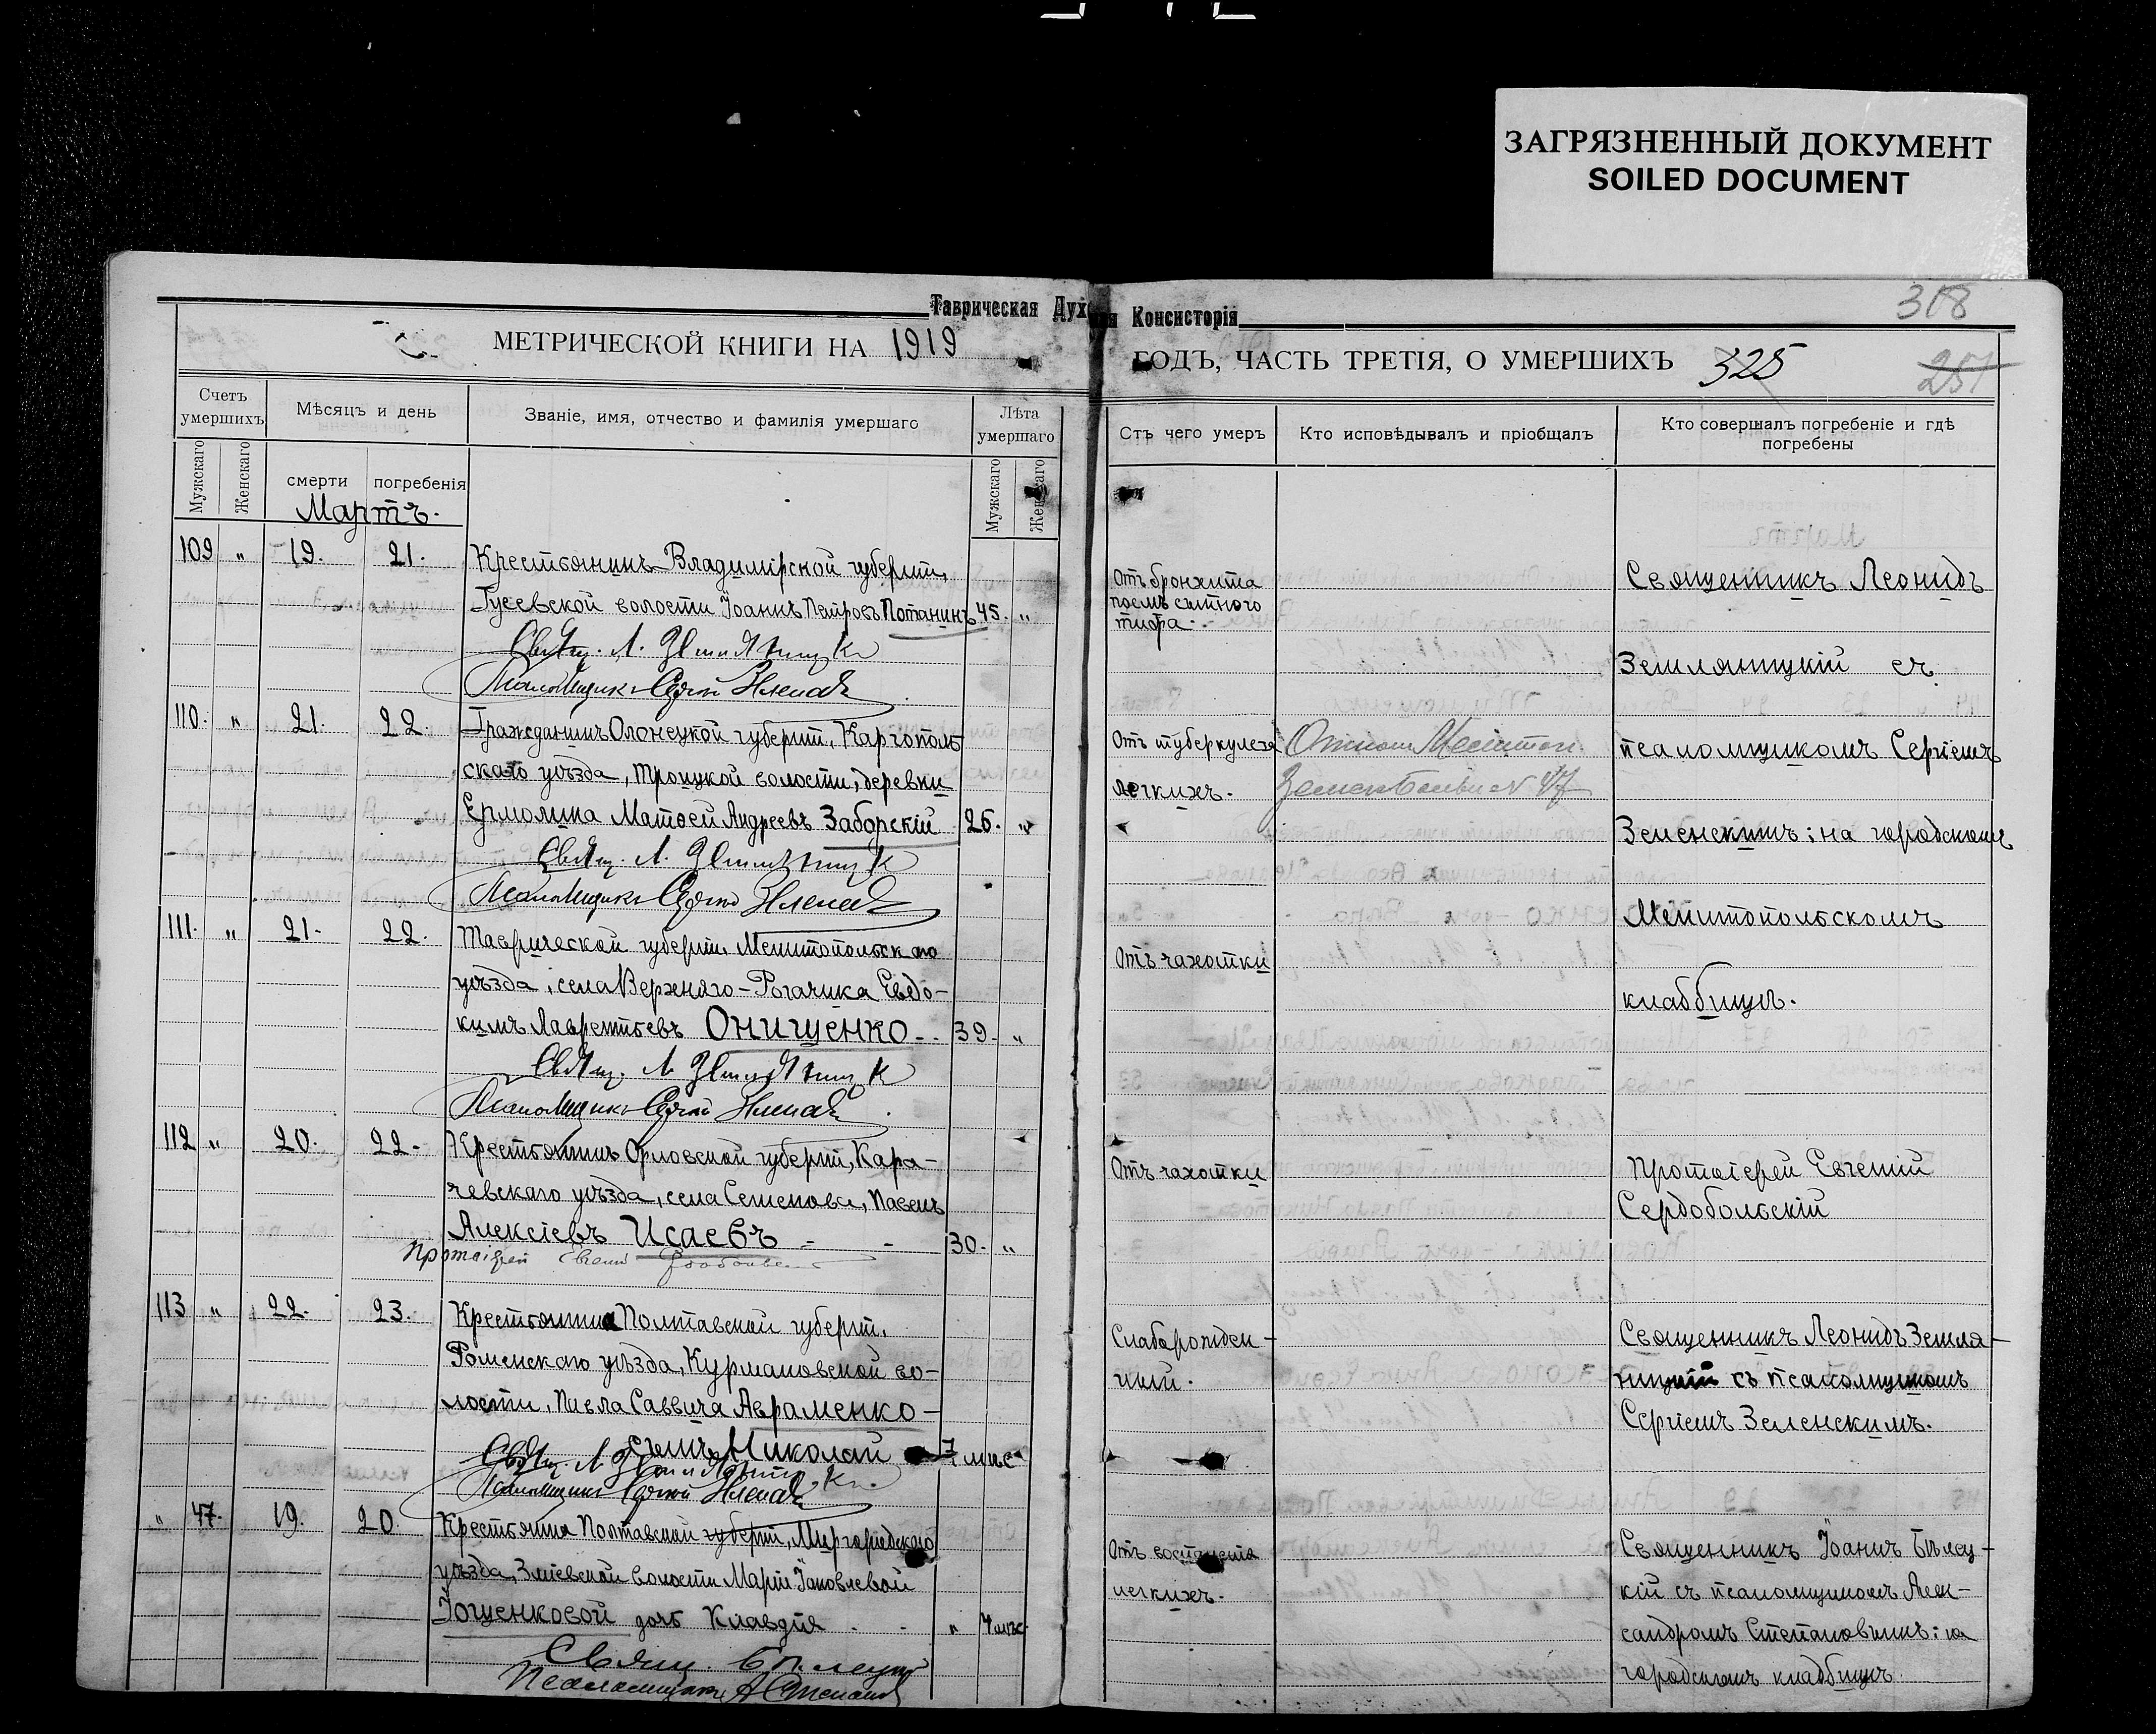 ЗАГРЯЗНЕННЫЙ ДОКУМЕНТ
SOILED DOCUMENT
308
Таврическая Дух
Консисторія
МЕТРИЧЕСКОЙ КНИГИ НА 1919
ГОДЪ, ЧАСТЬ ТРЕТІЯ, О УМЕРШИХЪ 325
251
Счетъ умершихъ
Мѣсяцъ и день
Званіе, имя, отчество и фамилія умершаго
Лѣта умершаго
Стъ чего умеръ
Кто исповѣдывалъ и пріобщалъ
Кто совершалъ погребеніе и гдѣ
погребены
Мужскаго
Женскаго
смерти
погребенія
Мужскаго
Женскаго
Мартъ.
109 " 19. 21. Крестьянинъ Владимірской губерніи,
Гусевской волости Іоаннъ Петровъ Потанинъ 45. "
Свящ. Л.
Псаломщикъ Сергій
Отъ бронхита
послѣ сыпного
тифа.
Священникъ Леонидъ
Земляницкій съ
110. " 21. 22. Гражданинъ Олонецкой губерніи, Каргополь
скаго уѣзда, Троицкой волости, деревни
Ермолина Матѳей Андреевъ Заборскій 26. "
Свящ. Л.
Псаломщикъ Сергій
Отъ туберкулеза
легкихъ.
псаломщикомъ Сергіемъ
Зеленскимъ: на городскомъ
111. " 21. 22. Таврической губерніи Мелитопольскаго
уѣзда, села Верхняго-Рогачика Евдо-
кимъ Лаврентьевъ Онищенко 39. "
Свящ. Л.
Псаломщикъ Сергій
Отъ чахотки
Мелитопольскомъ
кладбищѣ.
112 " 20. 22. Крестьянинъ Орловской губерніи, Кара-
чевскаго уѣзда, села Семеновки, Павелъ
Алексіевъ Исаевъ 30. "
Протоіерей Евгеній
Отъ чахотки
Протоіерей Евгеній
Сердобольскій
113 " 22. 23. Крестьянина Полтавской губерніи,
Роменскаго уѣзда, Курмановской во-
лости, Павла Саввича Авраменко-
сынъ Николай 7 мѣс
Свящ. Л.
Псаломщикъ Сергій
Слаборожден-
ный.
Священникъ Леонидъ Земля-
ницкій съ псаломщикомъ
Сергіемъ Зеленскимъ.
" 47. 19. 20. Крестьянки Полтавской губерніи, Миргородскаго
уѣзда, Зміевской волости Маріи Іаковлевой
Ющенковой дочь Клавдія " 4 мѣс.
Свящ.
Псаломщикъ А Степанов
Отъ воспаленія
легкихъ.
Священникъ Іоаннъ Бѣлец-
кій съ псаломщикомъ Алек-
сандромъ Степановымъ: на
городскомъ кладбищѣ.